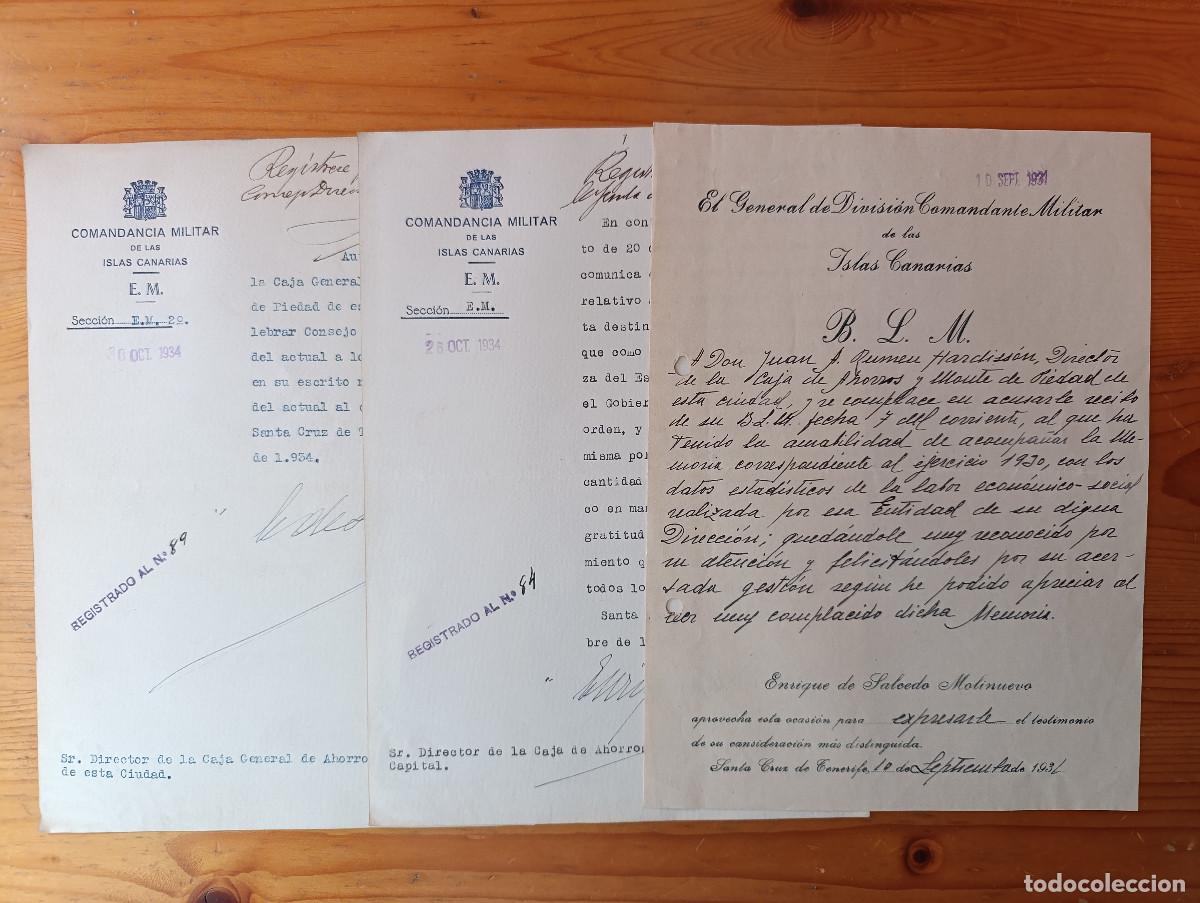 Regístrese
COMANDANCIA MILITAR
DE LAS
ISLAS CANARIAS
E. M.
Sección E.M. 2º.
OCT. 1934
la Caja General
de Piedad de es
lebrar Consejo
del actual a lo
en su escrito
del actual al
Santa Cruz de T
de 1.934.
REGISTRADO AL N.º 89
Sr. Director de la Caja General de Ahorro
de esta Ciudad.
COMANDANCIA MILITAR
DE LAS
ISLAS CANARIAS
E. M.
Sección E.M.
26 OCT. 1934
En con
to de 20
comunica
relativo
ta destin
que como
za del Es
el Gobier
orden, y
misma por
cantidad
co en ma
gratitud
miento q
todos lo
Santa
bre de 1
REGISTRADO AL N.º 84
Sr. Director de la Caja de Ahorro
Capital.
10 SEPT. 1931
El General de División Comandante Militar
de las
Islas Canarias
B. L. M.
A Don Juan A. Rumeu Hardissón, Director
de la Caja de Ahorros y Monte de Piedad de
esta ciudad, y se complace en acusarle recibo
de su B.L.M. fecha 7 del corriente, al que ha
tenido la amabilidad de acompañar la Me-
moria correspondiente al ejercicio 1930, con los
datos estadísticos de la labor económico-social
realizada por esa Entidad de su digna
Dirección; quedándole muy reconocido por
su atención y felicitándoles por su acer-
tada gestión según he podido apreciar al
leer muy complacido dicha Memoria.
Enrique de Salcedo Molinuevo
aprovecha esta ocasión para expresarle el testimonio
de su consideración más distinguida.
Santa Cruz de Tenerife, 10 de Septiembre de 1931
todocoleccion